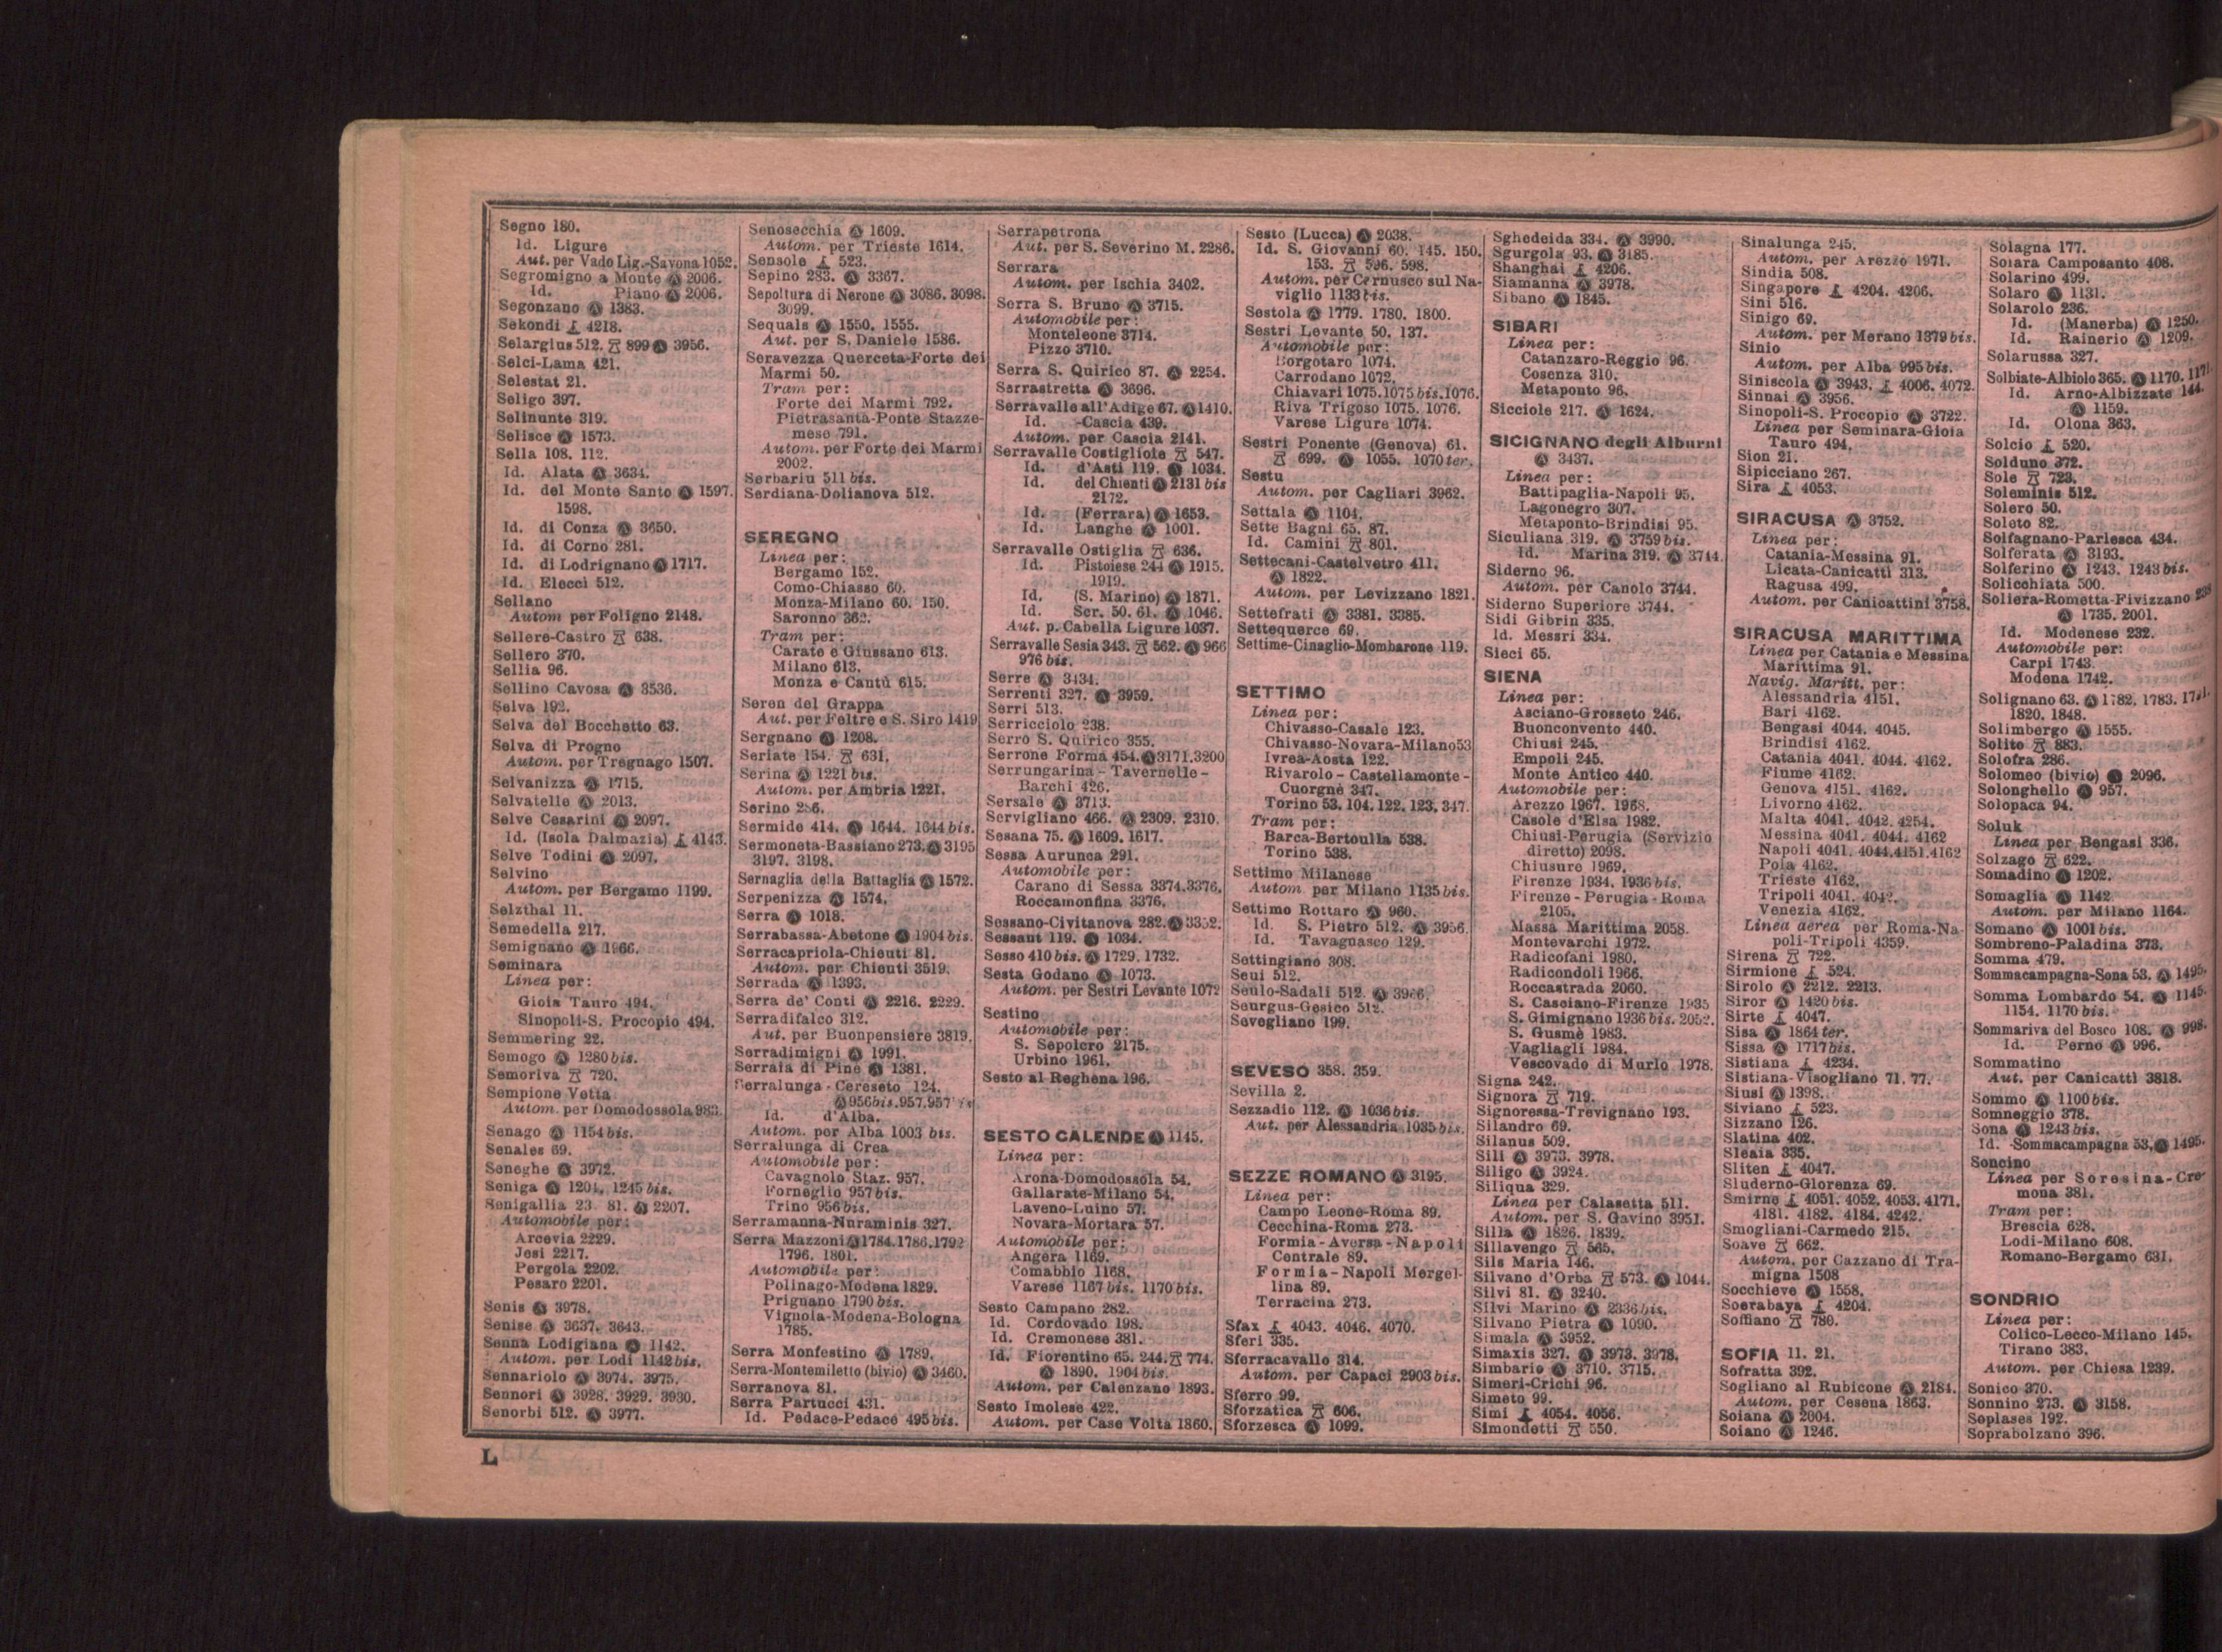 Segno 180.
Id. Ligure
Aut. per Vado Lig.-Savona 1052.
Segromigno a Monte Ⓐ 2006.
Id. Piano Ⓐ 2006.
Segonzano Ⓐ 1383.
Sekondi 4218.
Selargius 512. 899 Ⓐ 3956.
Selci-Lama 421.
Selestat 21.
Seligo 397.
Selinunte 319.
Selisce Ⓐ 1573.
Sella 108. 112.
Id. Alata Ⓐ 3634.
Id. del Monte Santo Ⓐ 1597.
1598.
Id. di Conza Ⓐ 3650.
Id. di Corno 281.
Id. di Lodrignano Ⓐ 1717.
Id. Elecci 512.
Sellano
Autom per Foligno 2148.
Sellere-Castro 638.
Sellero 370.
Sellia 96.
Sellino Cavosa Ⓐ 3536.
Selva 192.
Selva del Bocchetto 63.
Selva di Progno
Autom. per Tregnago 1507.
Selvanizza Ⓐ 1715.
Selvatelle Ⓐ 2013.
Selve Cesarini Ⓐ 2097.
Id. (Isola Dalmazia) 4143.
Selve Todini Ⓐ 2097.
Selvino
Autom. per Bergamo 1199.
Selzthal 11.
Semedella 217.
Semignano Ⓐ 1966.
Seminara
Linea per:
Gioia Tauro 494.
Sinopoli-S. Procopio 494.
Semmering 22.
Semogo Ⓐ 1280 bis.
Semoriva 720.
Sempione Vetta
Autom. per Domodossola 983.
Senago Ⓐ 1154 bis.
Senales 69.
Seneghe Ⓐ 3972.
Seniga Ⓐ 1204. 1245 bis.
Senigallia 23 81. Ⓐ 2207.
Automobile per:
Arcevia 2229.
Jesi 2217.
Pergola 2202.
Pesaro 2201.
Senis Ⓐ 3978.
Senise Ⓐ 3637. 3643.
Senna Lodigiana Ⓐ 1142.
Autom. per Lodi 1142 bis.
Sennariolo Ⓐ 3974. 3975.
Sennori Ⓐ 3928. 3929. 3930.
Senorbì 512. Ⓐ 3977.
Senosecchia Ⓐ 1609.
Autom. per Trieste 1614.
Sensole 523.
Sepino 283. Ⓐ 3367.
Sepoltura di Nerone Ⓐ 3086. 3098.
3099.
Sequals Ⓐ 1550. 1555.
Aut. per S. Daniele 1586.
Seravezza Querceta-Forte dei
Marmi 50.
Tram per:
Forte dei Marmi 792.
Pietrasanta-Ponte Stazze-
mese 791.
Autom. per Forte dei Marmi
2002.
Serbariu 511 bis.
Serdiana-Dolianova 512.
SEREGNO
Linea per:
Bergamo 152.
Como-Chiasso 60.
Monza-Milano 60. 150.
Saronno 362.
Tram per:
Carate e Giussano 613.
Milano 613.
Monza e Cantù 615.
Seren del Grappa
Aut. per Feltre e S. Siro 1419
Sergnano Ⓐ 1208.
Seriate 154. 631.
Serina Ⓐ 1221 bis.
Autom. per Ambria 1221.
Serino 286.
Sermide 414. Ⓐ 1644. 1644 bis.
Sermoneta-Bassiano 273. Ⓐ 3195
3197. 3198.
Sernaglia della Battaglia Ⓐ 1572.
Serpenizza Ⓐ 1574.
Serra Ⓐ 1018.
Serrabassa-Abetone Ⓐ 1904 bis.
Serracapriola-Chieuti 81.
Autom. per Chieuti 3519.
Serrada Ⓐ 1393.
Serra de' Conti Ⓐ 2216. 2229.
Serradifalco 312.
Aut. per Buonpensiere 3819.
Serradimigni Ⓐ 1991.
Serraia di Pinè Ⓐ 1381.
Serralunga - Cereseto 124.
Ⓐ 956 bis. 957. 957
Id. d'Alba.
Autom. per Alba 1003 bis.
Serralunga di Crea
Automobile per:
Cavagnolo Staz. 957.
Forneglio 957 bis.
Trino 956 bis.
Serramanna-Nuraminis 327.
Serra Mazzoni Ⓐ 1784. 1786. 1792
1796. 1801.
Automobile per:
Polinago-Modena 1829.
Prignano 1790 bis.
Vignola-Modena-Bologna
1785.
Serra Monfestino Ⓐ 1789.
Serra-Montemiletto (bivio) Ⓐ 3460.
Serranova 81.
Serra Partucci 431.
Id. Pedace-Pedace 495 bis.
Serrapetrona
Aut. per S. Severino M. 2286.
Serrara
Autom. per Ischia 3402.
Serra S. Bruno Ⓐ 3715.
Automobile per:
Monteleone 3714.
Pizzo 3710.
Serra S. Quirico 87. Ⓐ 2254.
Serrastretta Ⓐ 3696.
Serravalle all'Adige 67. Ⓐ 1410.
Id. -Cascia 439.
Autom. per Cascia 2141.
Serravalle Costigliole 547.
Id. d'Asti 119. Ⓐ 1034.
Id. del Chienti Ⓐ 2131 bis
2172.
Id. (Ferrara) Ⓐ 1653.
Id. Langhe Ⓐ 1001.
Serravalle Ostiglia 636.
Id. Pistoiese 244 Ⓐ 1915.
1919.
Id. (S. Marino) Ⓐ 1871.
Id. Scr. 50. 61. Ⓐ 1046.
Aut. p. Cabella Ligure 1037.
Serravalle Sesia 343. 562. Ⓐ 966
976 bis.
Serre Ⓐ 3434.
Serrenti 327. Ⓐ 3959.
Serri 513.
Serricciolo 238.
Serro S. Quirico 355.
Serrone Forma 454. Ⓐ 3171. 3200
Serrungarina - Tavernelle -
Barchi 426.
Sersale Ⓐ 3713.
Servigliano 466. Ⓐ 2309. 2310.
Sesana 75. Ⓐ 1609. 1617.
Sessa Aurunca 291.
Automobile per:
Carano di Sessa 3374. 3376.
Roccamonfina 3376.
Sessano-Civitanova 282. Ⓐ 3352.
Sessant 119. Ⓐ 1034.
Sesso 410 bis. Ⓐ 1729. 1732.
Sesta Godano Ⓐ 1073.
Autom. per Sestri Levante 1072
Sestino
Automobile per:
S. Sepolcro 2175.
Urbino 1961.
Sesto al Reghena 196.
SESTO CALENDE Ⓐ 1145.
Linea per:
Arona-Domodossola 54.
Gallarate-Milano 54.
Laveno-Luino 57.
Novara-Mortara 57.
Automobile per:
Angera 1169.
Comabbio 1168.
Varese 1167 bis. 1170 bis.
Sesto Campano 282.
Id. Cordovado 198.
Id. Cremonese 381.
Id. Fiorentino 65. 244. 774.
Ⓐ 1890. 1904 bis.
Autom. per Calenzano 1893.
Sesto Imolese 422.
Autom. per Case Volta 1860.
Sesto (Lucca) Ⓐ 2038.
Id. S. Giovanni 60. 145. 150.
153. 596. 598.
Autom. per Cernusco sul Na-
viglio 1133 bis.
Sestola Ⓐ 1779. 1780. 1800.
Sestri Levante 50. 137.
Automobile per:
Borgotaro 1074.
Carrodano 1072.
Chiavari 1075. 1075 bis. 1076.
Riva Trigoso 1075. 1076.
Varese Ligure 1074.
Sestri Ponente (Genova) 61.
699. Ⓐ 1055. 1070 ter.
Sestu
Autom. per Cagliari 3962.
Settala Ⓐ 1104.
Sette Bagni 65. 87.
Id. Camini 801.
Settecani-Castelvetro 411.
Ⓐ 1822.
Autom. per Levizzano 1821.
Settefrati Ⓐ 3381. 3385.
Settequerce 69.
Settime-Cinaglio-Mombarone 119.
SETTIMO
Linea per:
Chivasso-Casale 123.
Chivasso-Novara-Milano 53
Ivrea-Aosta 122.
Rivarolo - Castellamonte -
Cuorgnè 347.
Torino 53. 104. 122. 123. 347.
Tram per:
Barca-Bertoulla 538.
Torino 538.
Settimo Milanese
Autom per Milano 1135 bis.
Settimo Rottaro Ⓐ 960.
Id. S. Pietro 512. Ⓐ 3956
Id. Tavagnasco 129.
Settingiano 308.
Seui 512.
Seulo-Sadali 512. Ⓐ 3966.
Seurgus-Gesico 512.
Sevegliano 199.
SEVESO 358. 359.
Sevilla 2.
Sezzadio 112. Ⓐ 1036 bis.
Aut. per Alessandria 1035 bis.
SEZZE ROMANO Ⓐ 3195.
Linea per:
Campo Leone-Roma 89.
Cecchina-Roma 273.
Formia - Aversa - Napoli
Centrale 89.
Formia - Napoli Mergel-
lina 89.
Terracina 273.
Sfax 4043. 4046. 4070.
Sferi 335.
Sferracavallo 314.
Autom. per Capaci 2903 bis.
Sferro 99.
Sforzatica 606.
Sforzesca Ⓐ 1099.
Sghedeida 334. Ⓐ 3990.
Sgurgola 93. Ⓐ 3185.
Shanghai 4206.
Siamanna Ⓐ 3978.
Sibano Ⓐ 1845.
SIBARI
Linea per:
Catanzaro-Reggio 96.
Cosenza 310.
Metaponto 96.
Sicciole 217. Ⓐ 1624.
SICIGNANO degli Alburni
Ⓐ 3437.
Linea per:
Battipaglia-Napoli 95.
Lagonegro 307.
Metaponto-Brindisi 95.
Siculiana 319. Ⓐ 3759 bis.
Id. Marina 319. Ⓐ 3744
Siderno 96.
Autom. per Canolo 3744.
Siderno Superiore 3744.
Sidi Gibrin 335.
Id. Messri 334.
Sieci 65.
SIENA
Linea per:
Asciano-Grosseto 246.
Buonconvento 440.
Chiusi 245.
Empoli 245.
Monte Antico 440.
Automobile per:
Arezzo 1967. 1968.
Casole d'Elsa 1982.
Chiusi-Perugia (Servizio
diretto) 2098.
Chiusure 1969.
Firenze 1934. 1936 bis.
Firenze - Perugia - Roma
2105.
Massa Marittima 2058.
Montevarchi 1972.
Radicofani 1980.
Radicondoli 1966.
Roccastrada 2060.
S. Casciano-Firenze 1935
S. Gimignano 1936 bis. 2052.
S. Gusmè 1983.
Vagliagli 1984.
Vescovado di Murlo 1978.
Signa 242.
Signora 719.
Signoressa-Trevignano 193.
Silandro 69.
Silanus 509.
Sili Ⓐ 3973. 3978.
Siligo Ⓐ 3924.
Siliqua 329.
Linea per Calasetta 511.
Autom. per S. Gavino 3951.
Silla Ⓐ 1826. 1839.
Sillavengo 565.
Sils Maria 146.
Silvano d'Orba 573. Ⓐ 1044.
Silvi 81. Ⓐ 3240.
Silvi Marino Ⓐ 2336 bis.
Silvano Pietra Ⓐ 1090.
Simala Ⓐ 3952.
Simaxis 327. Ⓐ 3973. 3978.
Simbario Ⓐ 3710. 3715.
Simeri-Crichi 96.
Simeto 99.
Simi 4054. 4056.
Simondetti 550.
Sinalunga 245.
Autom. per Arezzo 1971.
Sindia 508.
Singapore 4204. 4206.
Sini 516.
Sinigo 69.
Autom. per Merano 1379 bis.
Sinio
Autom. per Alba 995 bis.
Siniscola Ⓐ 3943. 4006. 4072.
Sinnai Ⓐ 3956.
Sinopoli-S. Procopio Ⓐ 3722.
Linea per Seminara-Gioia
Tauro 494.
Sion 21.
Sipicciano 267.
Sira 4053.
SIRACUSA Ⓐ 3752.
Linea per:
Catania-Messina 91.
Licata-Canicattì 313.
Ragusa 499.
Autom. per Canicattini 3758.
SIRACUSA MARITTIMA
Linea per Catania e Messina
Marittima 91.
Navig. Maritt. per:
Alessandria 4151.
Bari 4162.
Bengasi 4044. 4045.
Brindisi 4162.
Catania 4041. 4044. 4162.
Fiume 4162.
Genova 4151. 4162.
Livorno 4162.
Malta 4041. 4042. 4254.
Messina 4041. 4044. 4162
Napoli 4041. 4044. 4151. 4162
Pola 4162.
Trieste 4162.
Tripoli 4041. 4042.
Venezia 4162.
Linea aerea per Roma-Na-
poli-Tripoli 4359.
Sirena 722.
Sirmione 524.
Sirolo Ⓐ 2212. 2213.
Siror Ⓐ 1420 bis.
Sirte 4047.
Sisa Ⓐ 1864 ter.
Sissa Ⓐ 1717 bis.
Sistiana 4234.
Sistiana-Visogliano 71. 77.
Siusi Ⓐ 1398.
Siviano 523.
Sizzano 126.
Slatina 402.
Sleaia 335.
Sliten 4047.
Sluderno-Glorenza 69.
Smirne 4051. 4052. 4053. 4171.
4181. 4182. 4184. 4242.
Smogliani-Carmedo 215.
Soave 662.
Autom. per Cazzano di Tra-
migna 1508
Socchieve Ⓐ 1558.
Soerabaya 4204.
Soffiano 780.
SOFIA 11. 21.
Sofratta 392.
Sogliano al Rubicone Ⓐ 2184.
Autom. per Cesena 1863.
Soiana Ⓐ 2004.
Soiano Ⓐ 1246.
Solagna 177.
Solara Camposanto 408.
Solarino 499.
Solaro Ⓐ 1131.
Solarolo 236.
Id. (Manerba) Ⓐ 1250.
Id. Rainerio Ⓐ 1209.
Solarussa 327.
Solbiate-Albiolo 365. Ⓐ 1170. 1171
Id. Arno-Albizzate 144.
Ⓐ 1159.
Id. Olona 363.
Solcio 520.
Solduno 372.
Sole 723.
Soleminis 512.
Solero 50.
Soleto 82.
Solfagnano-Parlesca 434.
Solferata Ⓐ 3193.
Solferino Ⓐ 1243. 1243 bis.
Solicchiata 500.
Soliera-Rometta-Fivizzano
Ⓐ 1735. 2001.
Id. Modenese 232.
Automobile per:
Carpi 1743.
Modena 1742.
Solignano 63. Ⓐ 1782. 1783.
1820. 1848.
Solimbergo Ⓐ 1555.
Solito 883.
Solofra 286.
Solomeo (bivio) Ⓐ 2096.
Solonghello Ⓐ 957.
Solopaca 94.
Soluk
Linea per Bengasi 336.
Solzago 622.
Somadino Ⓐ 1202.
Somaglia Ⓐ 1142
Autom. per Milano 1164.
Somano Ⓐ 1001 bis.
Sombreno-Paladina 373.
Somma 479.
Sommacampagna-Sona 53. Ⓐ 1495.
Somma Lombardo 54. Ⓐ 1145.
1154. 1170 bis.
Sommariva del Bosco 108. Ⓐ 998.
Id. Perno Ⓐ 996.
Sommatino
Aut. per Canicattì 3818.
Sommo Ⓐ 1100 bis.
Somneggio 378.
Sona Ⓐ 1243 bis.
Id. -Sommacampagna 53. Ⓐ 1495.
Soncino
Linea per Soresina-Cre-
mona 381.
Tram per:
Brescia 628.
Lodi-Milano 608.
Romano-Bergamo 631.
SONDRIO
Linea per:
Colico-Lecco-Milano 145.
Tirano 383.
Autom. per Chiesa 1239.
Sonico 370.
Sonnino 273. Ⓐ 3158.
Soplases 192.
Soprabolzano 396.
L